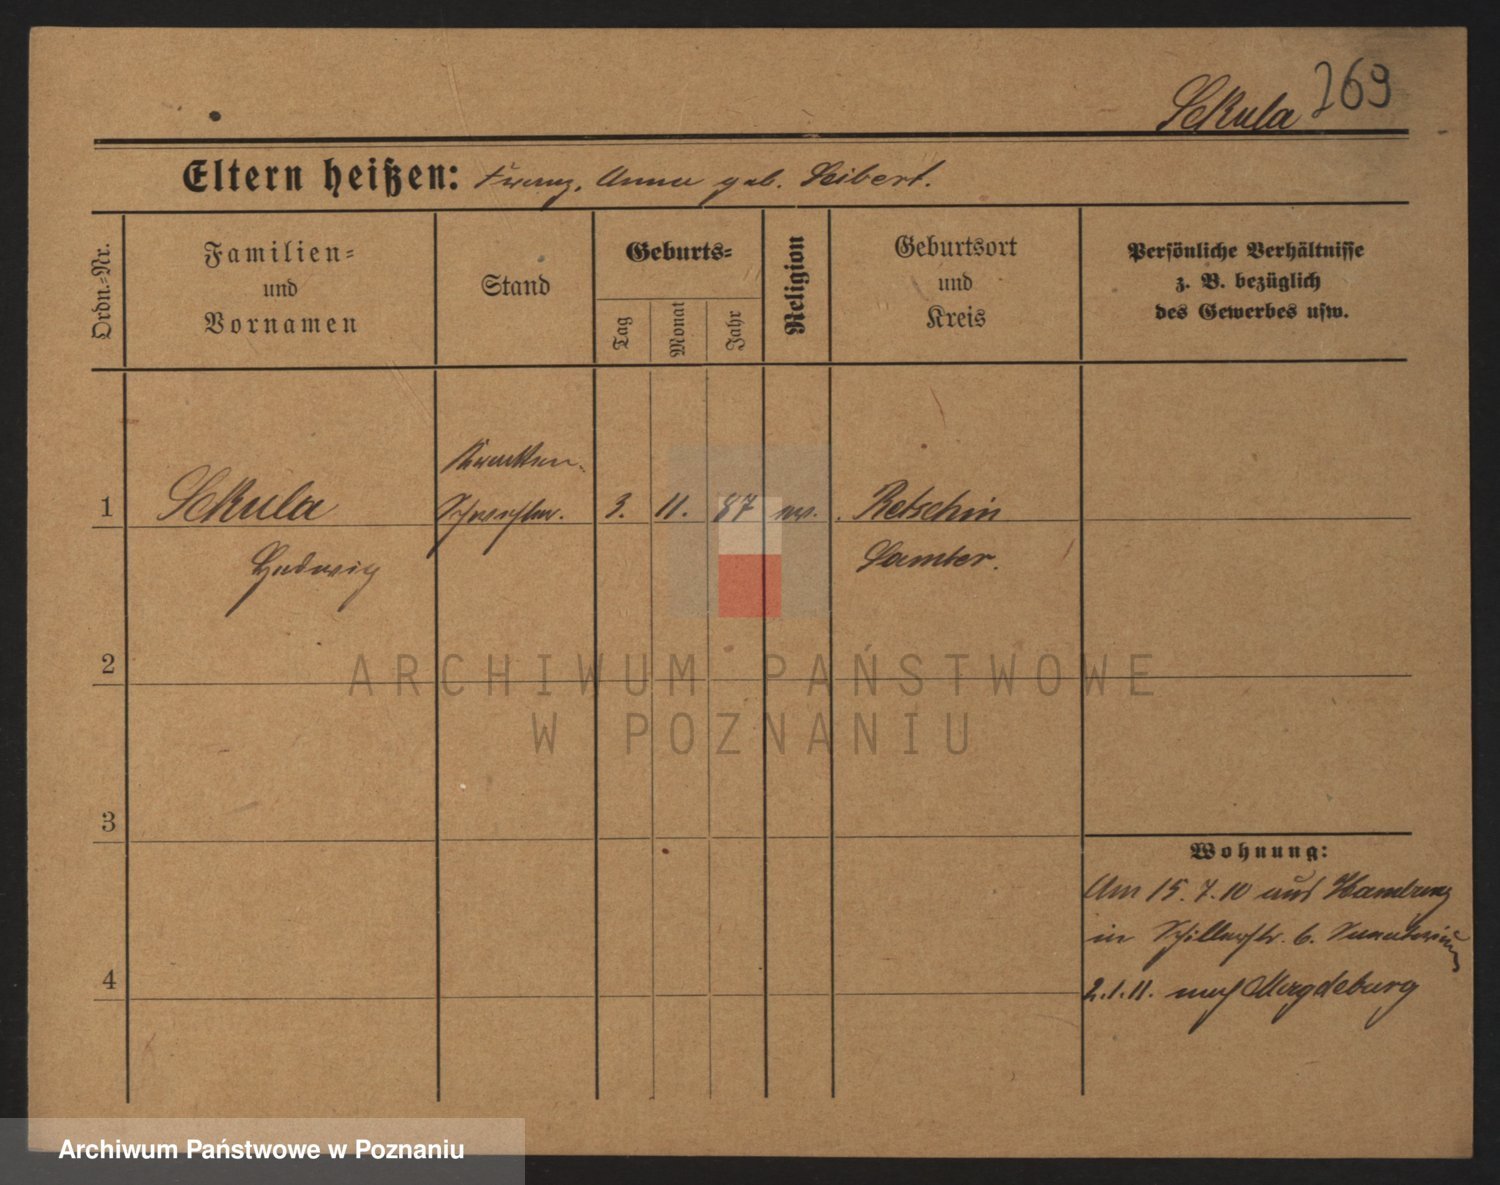 Sekula 269
Eltern heißen: Franz, Anna geb. Seibert.
Ordn.=Nr.
Familien=
und
Vornamen
Stand
Geburts=
Tag
Monat
Jahr
Religion
Geburtsort
und
Kreis
Persönliche Verhältnisse
z. B. bezüglich
des Gewerbes usw.
Kranken-
1 Sekula Schwester. 3. 11. 87 ev. Retschin
Hedwig Samter.
2
ARCHIWUM PAŃSTWOWE
W POZNANIU
3
Wohnung:
Am 15.7.10 aus Hamburg
in Schillerstr. 6.
4
2.1.11. nach Magdeburg
Archiwum Państwowe w Poznaniu